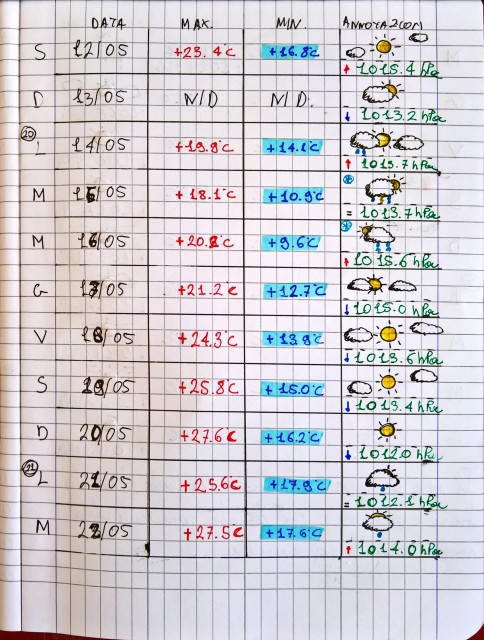 DATA MAX. MIN. ANNOTAZIONI
S 12/05 +23.4°C +16.8°C ↑ 1015.4 hPa
D 13/05 N/D N/D. ↓ 1013.2 hPa
20 L 14/05 +19.8°C +14.1°C ↑ 1013.7 hPa
M 15/05 +18.1°C +10.9°C = 1013.7 hPa
M 16/05 +20.2°C +9.6°C ↑ 1015.6 hPa
G 17/05 +21.2°C +12.7°C ↓ 1015.0 hPa
V 18/05 +24.3°C +13.8°C ↓ 1013.6 hPa
S 19/05 +25.8°C +15.0°C ↓ 1013.4 hPa
D 20/05 +27.6°C +16.2°C ↓ 1012.0 hPa
21 L 21/05 +25.6°C +17.9°C = 1012.1 hPa
M 22/05 +27.5°C +17.6°C ↑ 1014.0 hPa